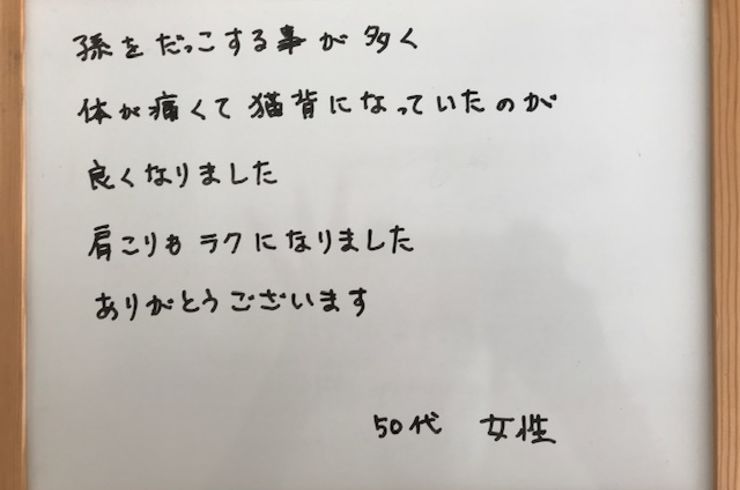 孫をだっこする事が多く
体が痛くて猫背になっていたのが
良くなりました
肩こりもラクになりました
ありがとうございます
50代 女性